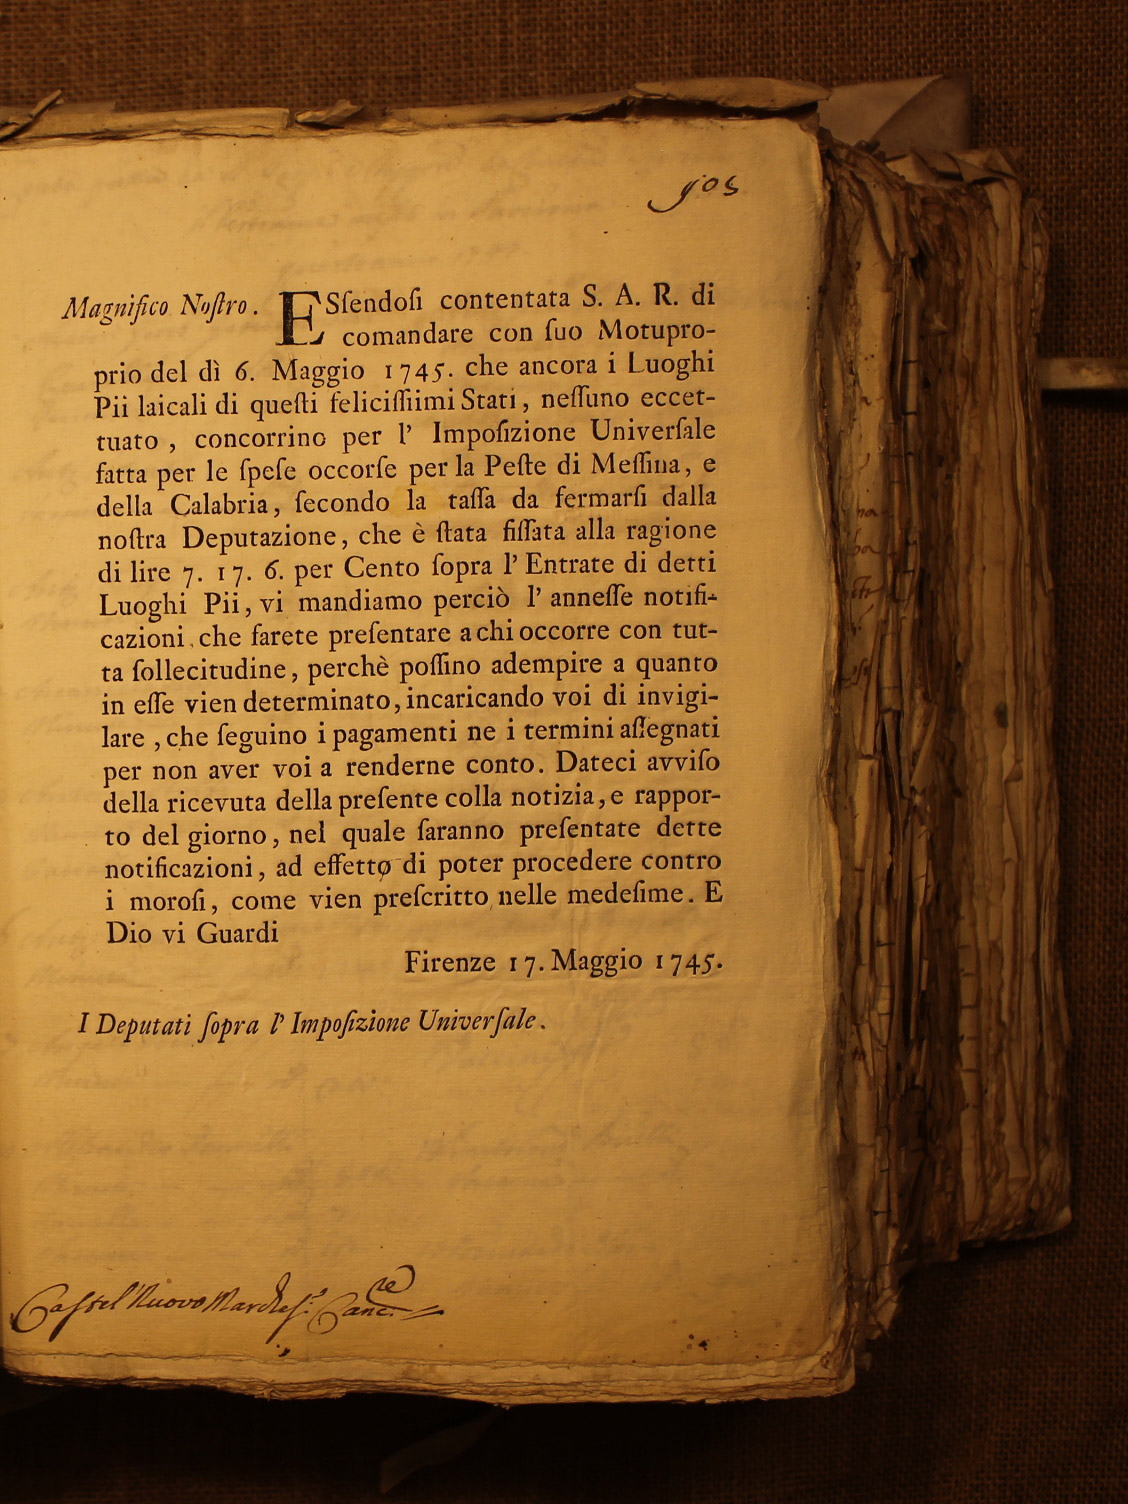 Magnifico Noſtro. ESſendoſi contentata S. A. R. di
comandare con ſuo Motupro-
prio del dì 6. Maggio 1745. che ancora i Luoghi
Pii laicali di queſti feliciſſiimi Stati, neſſuno eccet-
tuato , concorrino per l' Impoſizione Univerſale
fatta per le ſpeſe occorſe per la Peſte di Meſſina, e
della Calabria, ſecondo la taſſa da fermarſi dalla
noſtra Deputazione, che è ſtata fiſſata alla ragione
di lire 7. 17. 6. per Cento ſopra l' Entrate di detti
Luoghi Pii, vi mandiamo perciò l' anneſſe notifi-
cazioni, che farete preſentare a chi occorre con tut-
ta ſollecitudine, perchè poſſino adempire a quanto
in eſſe vien determinato, incaricando voi di invigi-
lare , che ſeguino i pagamenti ne i termini aſſegnati
per non aver voi a renderne conto. Dateci avviſo
della ricevuta della preſente colla notizia, e rappor-
to del giorno, nel quale ſaranno preſentate dette
notificazioni, ad effetto di poter procedere contro
i moroſi, come vien preſcritto nelle medeſime. E
Dio vi Guardi
Firenze 17. Maggio 1745.
I Deputati ſopra l' Impoſizione Univerſale.
Castel Nuovo